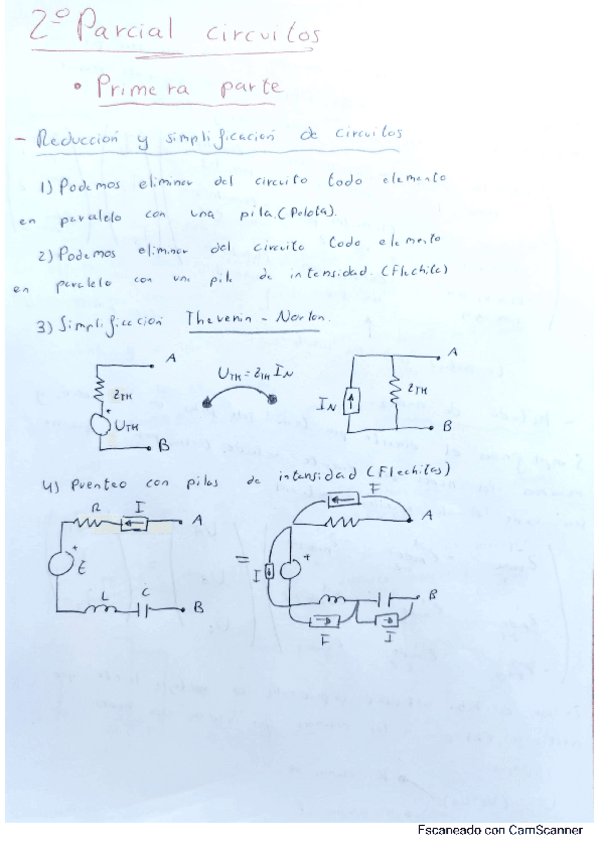 2º Parcial circuitos
• Primera parte
- Reducción y simplificación de circuitos
1) Podemos eliminar del circuito todo elemento
en paralelo con una pila. (Pelota).
2) Podemos eliminar del circuito todo elemento
en paralelo con una pila de intensidad. (Flechita)
3) Simplificación Thevenin - Norton.
A
Z_TH
U_TH
B
U_TH = Z_TH I_N
A
I_N
Z_TH
B
4) Puenteo con pilas de intensidad (Flechitas)
R I A
+
E
L C B
=
F
A
I
+
B
F I
Escaneado con CamScanner